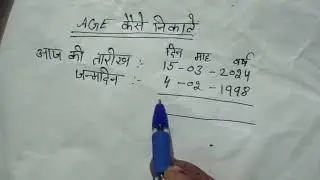 AGE कैसे निकाले
दिन माह वर्ष
आज की तारीख :- 15-03-2024
जन्मदिन :- 4-02-1998